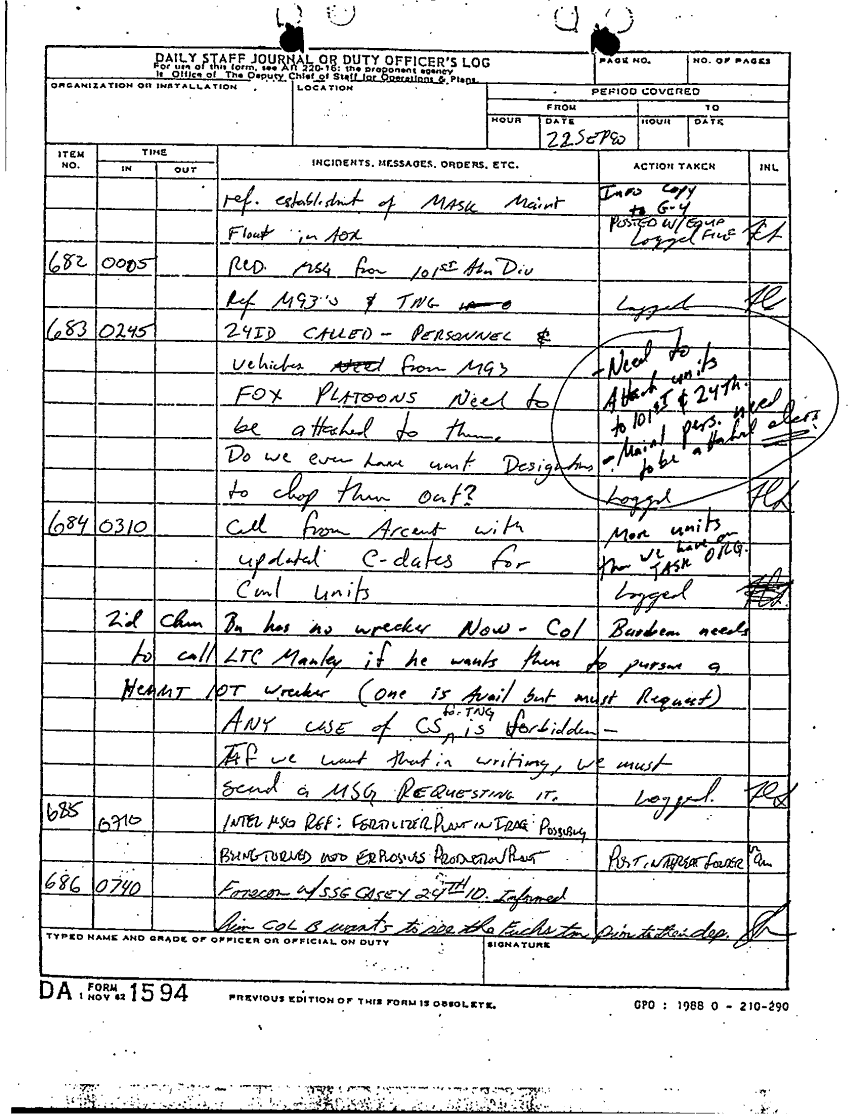 DAILY STAFF JOURNAL OR DUTY OFFICER'S LOG
For use of this form, see AR 220-15; the proponent agency
is Office of The Deputy Chief of Staff for Operations & Plans.
PAGE NO.
NO. OF PAGES
ORGANIZATION OR INSTALLATION
LOCATION
PERIOD COVERED
FROM
TO
HOUR
DATE
HOUR
DATE
22 SEP 90
ITEM NO.
TIME
IN
OUT
INCIDENTS, MESSAGES, ORDERS, ETC.
ACTION TAKEN
INL
ref. establishment of MASK Maint
Float in AOR
Info Copy
to G-4
POSTED W/EQUIP
Logged FILE
682 0005 RCD. MSG from 101ST Abn Div
Ref M93's & TNG
Logged
683 0245 24ID CALLED - PERSONNEL &
vehicles from M93
FOX PLATOONS Need to
be attached to them.
Do we even have unit Designations
to chop them out?
- Need to
Attach units
to 101ST & 24TH.
- Maint pers. need
to be attached also
Logged
684 0310 Call from Arcent with
updated C-dates for
Cml units
More units
than we have on
TASK ORG.
Logged
2d Chem Bn has no wrecker Now - Col needs
to call LTC Manley if he wants them to pursue a
HEMMT 10T wrecker (one is Avail but must Request)
ANY USE of CS for TNG is forbidden -
If we want that in writing, we must
send a MSG REQUESTING IT.
Logged.
685 0710 INTEL MSG REF: FERTILIZER PLANT IN IRAQ POSSIBLY
BEING TURNED INTO EXPLOSIVES PRODUCTION PLANT
POST IN THREAT FOLDER
686 0740 Fonecon w/SSG CASEY 24TH ID. Informed
him COL B wants to see the Fuchs tm prior to their dep.
TYPED NAME AND GRADE OF OFFICER OR OFFICIAL ON DUTY
SIGNATURE
DA FORM 1 NOV 62 1594
PREVIOUS EDITION OF THIS FORM IS OBSOLETE.
GPO : 1988 O - 210-290